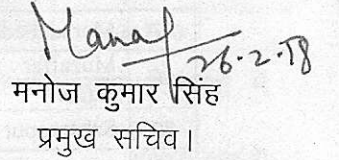 Manoj
26.2.18
मनोज कुमार सिंह
प्रमुख सचिव।